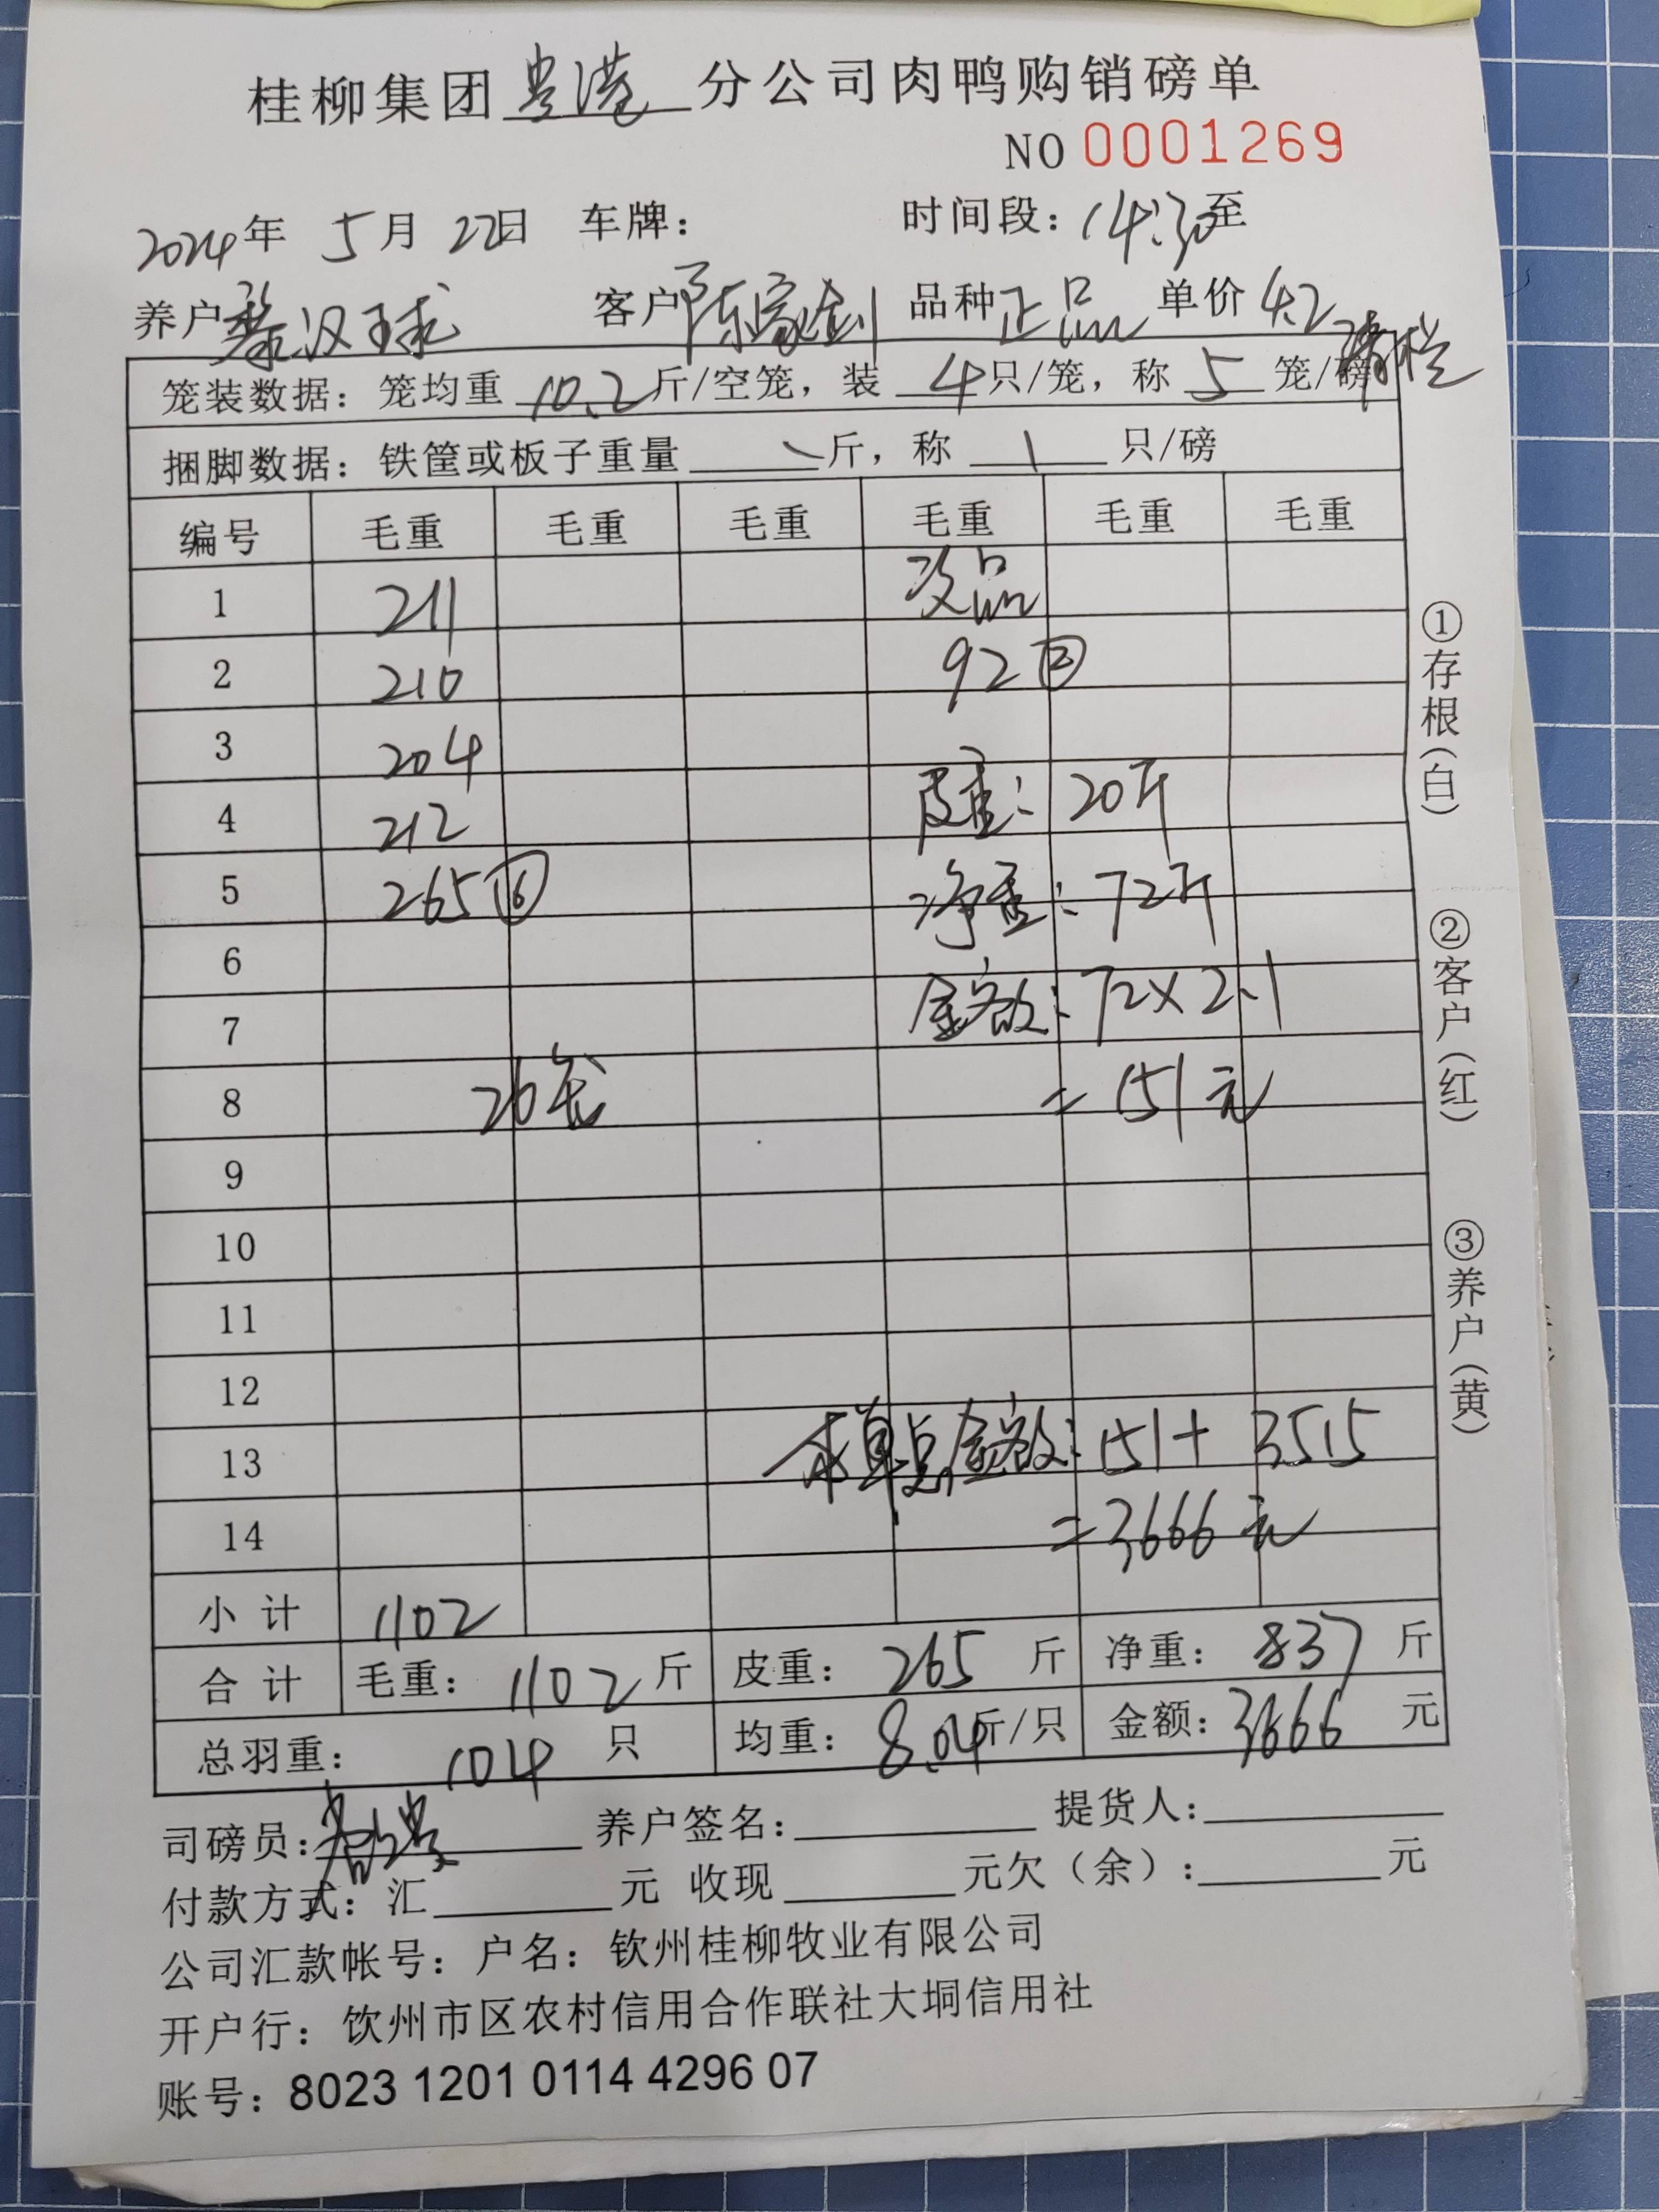 桂柳集团贵港分公司肉鸭购销磅单
NO 0001269
2024年 5月 22日 车牌： 时间段：14:30至
养户黎汉球 客户陈家剑 品种正品 单价4.2
清栏
笼装数据：笼均重 10.2 斤/空笼，装 4 只/笼，称 5 笼/磅
捆脚数据：铁筐或板子重量 \ 斤，称 \ 只/磅
编号 毛重 毛重 毛重 毛重 毛重 毛重
1 211 次品
2 210 92②
3 204
4 212 皮重：20斤
5 265⑥ 净重：72斤
6
7 金额：72×2.1
8 26笼 =151元
9
10
11
12
13 本单总金额：151+3515
14 =3666元
小计 1102
合计 毛重：1102斤 皮重：265斤 净重：837斤
总羽重：104只 均重：8.04斤/只 金额：3666元
司磅员： 养户签名： 提货人：
付款方式：汇 元 收现 元欠（余）： 元
公司汇款帐号：户名：钦州桂柳牧业有限公司
开户行：钦州市区农村信用合作联社大垌信用社
账号：8023 1201 0114 4296 07
①存根（白）
②客户（红）
③养户（黄）